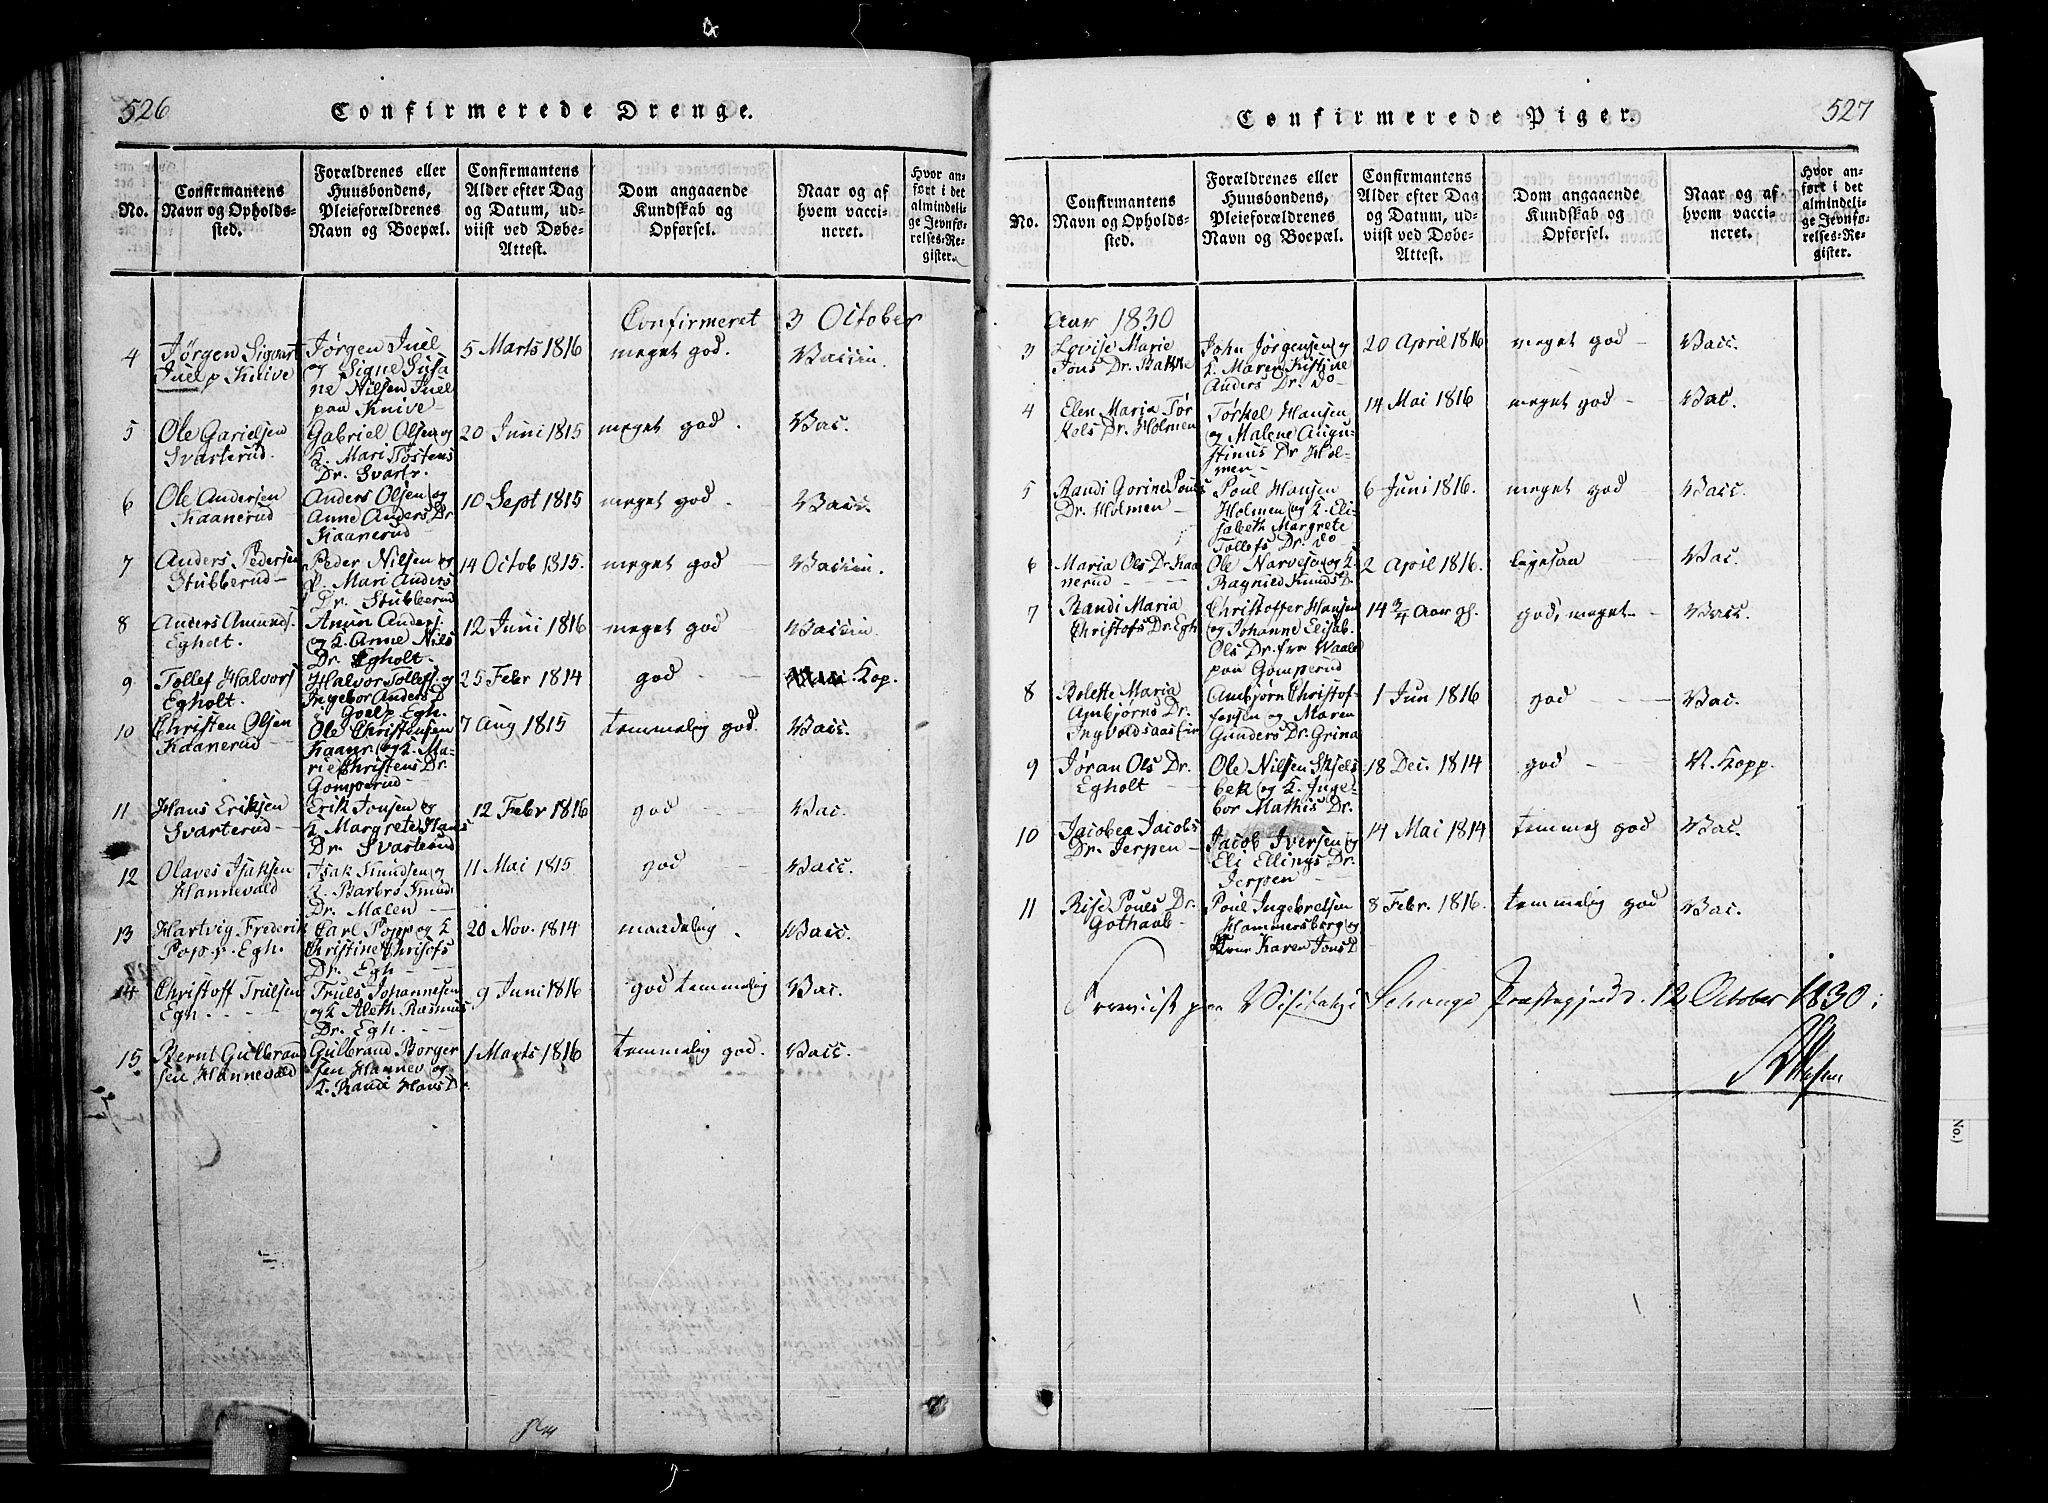 526
Confirmerede Drenge.
No.
Confirmantens
Navn og Opholds-
sted.
Forældrenes eller
Huusbondens,
Pleieforældrenes
Navn og Boepæl.
Confirmantens
Alder efter Dag
og Datum, ud-
viist ved Døbe-
Attest.
Dom angaaende
Kundskab og
Opførsel.
Naar og af
hvem vacci-
neret.
Hvor an-
ført i det
almindeli-
ge Jevnfø-
relses-Re-
gister.
Confirmeret 3 October
4
Jørgen Sigvart
Juel p Knive
Jørgen Juel
og Signe Susa
ne Nilsen Juel
paa Knive
5 Marts 1816
meget god.
Vaccin
5
Ole Garielsen
Svarterud.
Gabriel Olsen og
K. Mari Tostens
Dr. Svartr.
20 Juni 1815
meget god.
Vac.
6
Ole Andersen
Kaanerud
Anders Olsen og
Anne Anders Dr
Kaanerud
10 Sept 1815
meget god.
Vacc.
7
Anders Pedersen
Stubberud
Peder Nilsen og
K. Mari Anders
Dr. Stubberud
14 Octob 1815.
meget god
Vaccin.
8
Anders Amunds.
Egholt.
Amun Anders.
og K. Anne Nils
Dr. Egholt.
12 Juni 1816
meget god
Vaccin.
9
Tollef Halvors
Egholt.
Halvor Tollefs. og
Ingebor Anders D
Goelp Egh.
25 Febr 1814
god
Kop.
10
Christen Olsen
Kaanerud
Ole Christensen
Kaanr og K. Ma-
rie Christens Dr.
Gomperud
7 Aug 1815
temmelig god.
Vacc.
11
Hans Eriksen
Svarterud
Erik Jonsen og
K Margrete Hans
Dr Svarterud
12 Febr 1816
god
Vac.
12
Olaves Isaksen
Hannevald
Isak Knudsen og
K. Barbro Knuds
Dr. Mælen
11 Mai 1815
god
Vacc.
13
Hartvig Frederik
Pop. p. Egh.
Carl Popp og K
Christine Chrisofs
Dr. Egh
20 Nov. 1814
maadelig.
Vacc.
14
Christoff Trulsen
Egh.
Truls Johannesen
og K Aleth Rasmus
Dr. Egh.
9 Juni 1816
god temmelig
Vac.
15
Bernt Gulbrand
sen Hannevald
Gulbrand Borger
sen Hannev og
K. Randi Hans D
1 Marts 1816
temmelig god.
Vacc.
527
Confirmerede Piger.
No.
Confirmantens
Navn og Opholds-
sted.
Forældrenes eller
Huusbondens,
Pleieforældrenes
Navn og Boepæl.
Confirmantens
Alder efter Dag
og Datum, ud-
viist ved Døbe-
Attest.
Dom angaaende
Kundskab og
Opførsel.
Naar og af
hvem vacci-
neret.
Hvor an-
ført i det
almindeli-
ge Jevnfø-
relses-Re-
gister.
Aar 1830
3
Lovise Marie
Jons Dr. Bakke
John Jørgensen og
K. Maren Kistine
Anders Dr. do
20 April 1816
meget god
Vacc.
4
Elen Maria Tør
kels Dr. Holmen
Tørkel Hansen
og Malene Augu-
stinus Dr Hol-
men
14 Mai 1816
meget god
Vac.
5
Randi Gorine Pouls
Dr. Holmen
Poul Hansen
Holmen og K. Eli-
sabeth Margrete
Tollefs Dr. do
6 Juni 1816.
meget god
Vacc.
6
Maria Ols Dr Kaa
nerud
Ole Narvesen og K
Ragnild Knuds D.
2 April 1816.
ligesaa
Vac.
7
Randi Maria
Christofs Dr. Egh
Christoffer Hansen
og Johanne Elisab.
Ols Dr. fra Waale
paa Gomperud
14 3/4 Aar gl.
god, meget
Vacc.
8
Bolette Maria
Ambjørns Dr.
Ingvoldsaas Eie
Ambjørn Christof-
fersen og Maren
Gunders Dr. Grina
1 Jun 1816
god
Vac.
9
Jøran Ols Dr.
Egholt
Ole Nilsen Skjels
bek og K. Inge-
bor Mathis Dr.
18 Dec. 1814
god
N. Kopp.
10
Jacobea Jacobs
Dr. Jerpen
Jacob Iversen og
Eli Ellings Dr.
Jerpen
14 Mai 1814
temmel god
Vac.
11
Rise Pouls Dr.
Gothaab
Poul Ingebretsen
Hammersborg og
Karen Jons D
8 Febr. 1816.
temmelig god
Vac.
Foreviist paa Visitatzi Præstegjeld d. 12 October 1830:
No.)